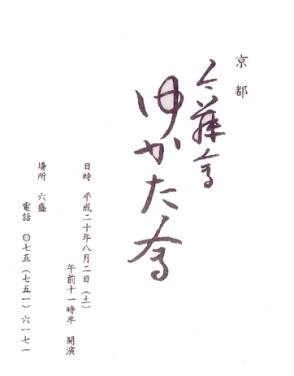 京都
今藤会
ゆかた会
日時 平成二十年八月二日（土）
午前十一時半 開演
場所 六盛
電話 〇七五（七五一）六一七一